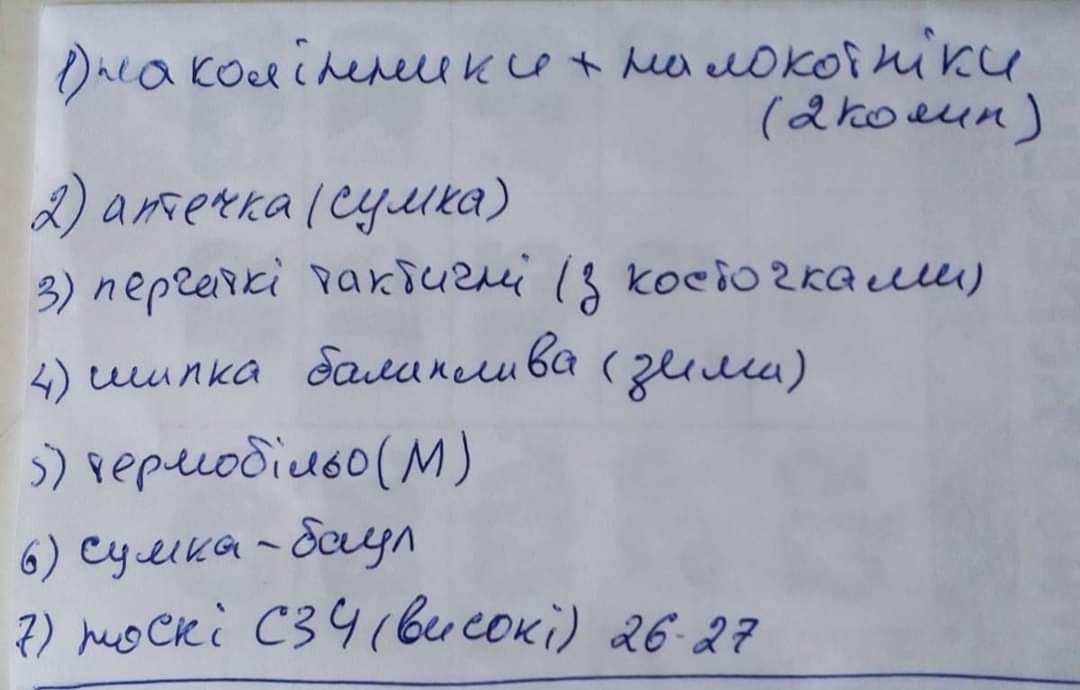 1) наколінники + налокотніки
(2 комп)
2) аптечка (сумка)
3) перчаткі тактичні (з косточками)
4) шапка балаклава (зима)
5) термобільо (М)
6) сумка - баул
7) носкі СЗЧ (високі) 26-27